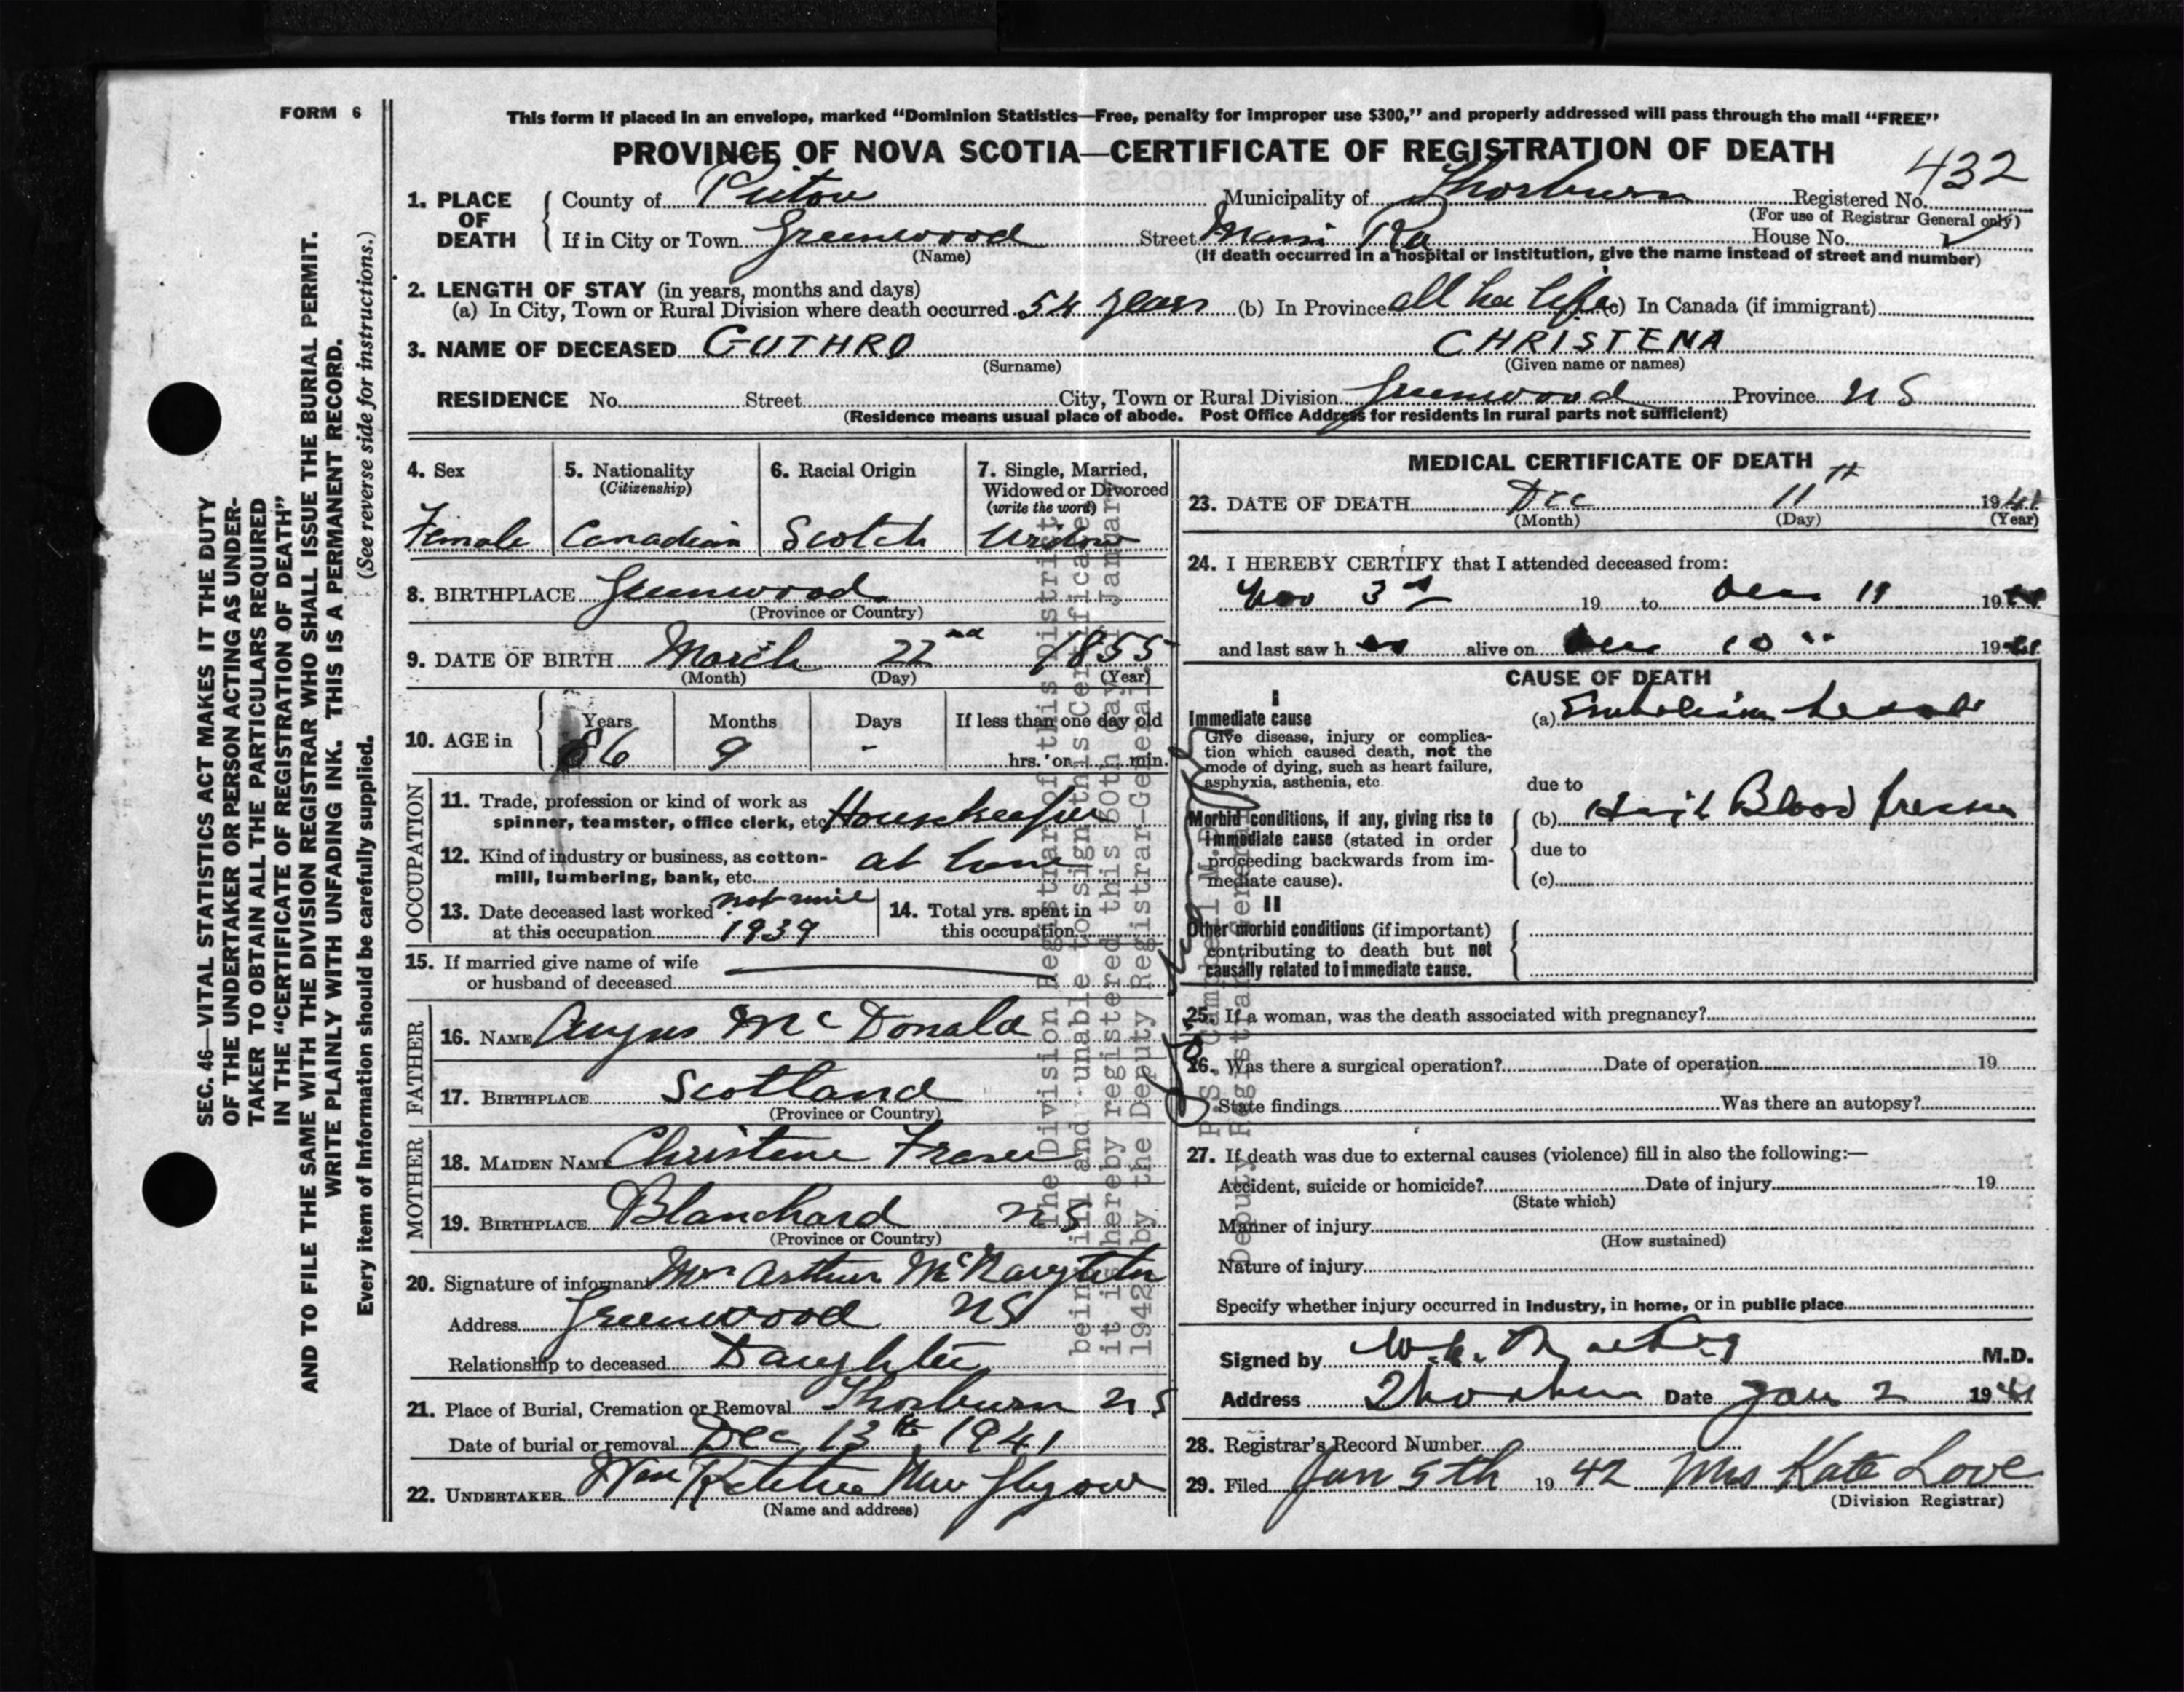 FORM 6
This form if placed in an envelope, marked “Dominion Statistics—Free, penalty for improper use $300,” and properly addressed will pass through the mail “FREE”
PROVINCE OF NOVA SCOTIA—CERTIFICATE OF REGISTRATION OF DEATH
432
1. PLACE OF DEATH County of Pictou Municipality of Thorburn Registered No.
(For use of Registrar General only)
If in City or Town Greenwood Street Main Rd House No.
(Name) (If death occurred in a hospital or institution, give the name instead of street and number)
2. LENGTH OF STAY (in years, months and days)
(a) In City, Town or Rural Division where death occurred 54 years (b) In Province all her life (c) In Canada (if immigrant)
3. NAME OF DECEASED GUTHRO CHRISTENA
(Surname) (Given name or names)
RESIDENCE No. Street City, Town or Rural Division Greenwood Province N S
(Residence means usual place of abode. Post Office Address for residents in rural parts not sufficient)
4. Sex
Female
5. Nationality
(Citizenship)
Canadian
6. Racial Origin
Scotch
7. Single, Married,
Widowed or Divorced
(write the word)
Widow
8. BIRTHPLACE Greenwood
(Province or Country)
9. DATE OF BIRTH March 22nd 1855
(Month) (Day) (Year)
10. AGE in Years Months Days If less than one day old
86 9 - hrs. or min.
OCCUPATION
11. Trade, profession or kind of work as
spinner, teamster, office clerk, etc. Housekeeper
12. Kind of industry or business, as cotton-
mill, lumbering, bank, etc. at home
13. Date deceased last worked not since
at this occupation 1939
14. Total yrs. spent in
this occupation
15. If married give name of wife
or husband of deceased
FATHER
16. NAME Angus McDonald
17. BIRTHPLACE Scotland
(Province or Country)
MOTHER
18. MAIDEN NAME Christene Fraser
19. BIRTHPLACE Blanchard N S
(Province or Country)
20. Signature of informant Mrs Arthur McNaughton
Address Greenwood NS
Relationship to deceased Daughter
21. Place of Burial, Cremation or Removal Thorburn N S
Date of burial or removal Dec 13th 1941
22. UNDERTAKER Wm New Glasgow
(Name and address)
MEDICAL CERTIFICATE OF DEATH
23. DATE OF DEATH Dec 11th 1941
(Month) (Day) (Year)
24. I HEREBY CERTIFY that I attended deceased from:
Nov 3rd 19 to Dec 11 19
and last saw h alive on Dec 10 19
CAUSE OF DEATH
I
Immediate cause
Give disease, injury or complica-
tion which caused death, not the
mode of dying, such as heart failure,
asphyxia, asthenia, etc.
(a) Embolism
due to
Morbid conditions, if any, giving rise to
immediate cause (stated in order
proceeding backwards from im-
mediate cause).
(b) High Blood Pressure
due to
(c)
II
Other morbid conditions (if important)
contributing to death but not
causally related to immediate cause.
25. If a woman, was the death associated with pregnancy?
26. Was there a surgical operation? Date of operation 19
State findings Was there an autopsy?
27. If death was due to external causes (violence) fill in also the following:—
Accident, suicide or homicide? Date of injury 19
(State which)
Manner of injury
(How sustained)
Nature of injury
Specify whether injury occurred in industry, in home, or in public place
Signed by M.D.
Address Thorburn Date Jan 2 1941
28. Registrar's Record Number
29. Filed Jan 5th 19 42 Mrs Kate Love
(Division Registrar)
The Division Registrar of this District
being ill and unable to sign this Certificate
it is hereby registered this 30th day of January
1942 by the Deputy Registrar-General
P.S. Campbell M.D.
Deputy Registrar General
SEC. 46—VITAL STATISTICS ACT MAKES IT THE DUTY
OF THE UNDERTAKER OR PERSON ACTING AS UNDER-
TAKER TO OBTAIN ALL THE PARTICULARS REQUIRED
IN THE “CERTIFICATE OF REGISTRATION OF DEATH”
AND TO FILE THE SAME WITH THE DIVISION REGISTRAR WHO SHALL ISSUE THE BURIAL PERMIT.
WRITE PLAINLY WITH UNFADING INK. THIS IS A PERMANENT RECORD.
Every item of Information should be carefully supplied. (See reverse side for instructions.)